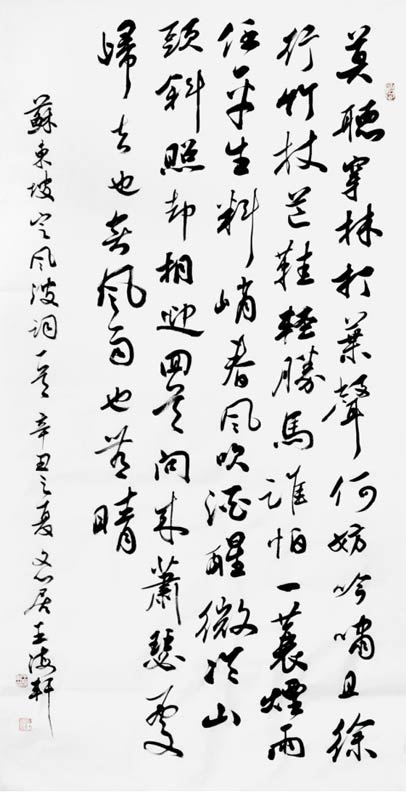 莫聽穿林打葉聲何妨吟嘯且徐
行竹杖芒鞋輕勝馬誰怕一蓑煙雨
任平生料峭春風吹酒醒微冷山
頭斜照却相迎回首向来蕭瑟處
歸去也無風雨也無晴
蘇東坡定風波詞一首辛丑之夏居王海軒